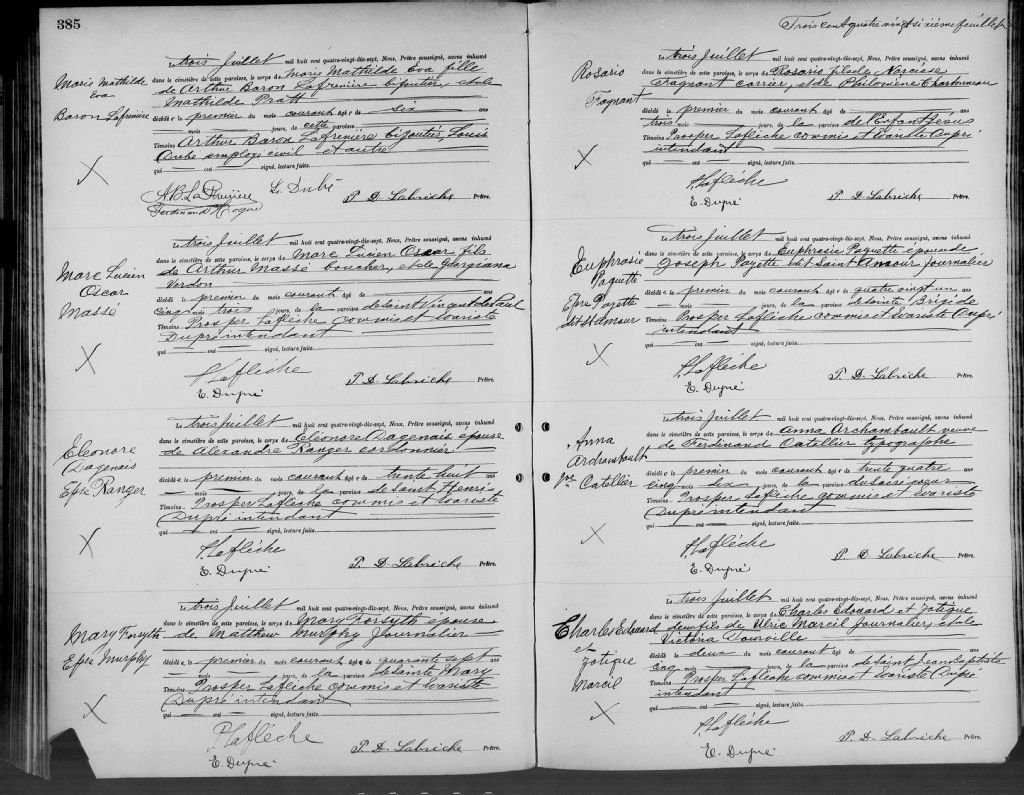 385
Marie Mathilde
Eva
Baron Lafrenière
Le trois Juillet mil huit cent quatre-vingt-dix-sept, Nous, Prêtre soussigné, avons inhumé
dans le cimetière de cette paroisse, le corps de Marie Mathilde Eva fille
de Arthur Baron Lafrenière bijoutier, et de
Mathilde Pratt
décédé e le premier du mois courant âgé e de six ans
— mois — jours, de cette paroisse
Témoins Arthur Baron Lafrenière bijoutier, Louis
Dubé employé civil et autre
qui — ont — signé, lecture faite.
Ls. Dubé
P. D. Labrèche Prêtre.
Marc Lucien
Oscar
Massé
Le trois Juillet mil huit cent quatre-vingt-dix-sept, Nous, Prêtre soussigné, avons inhumé
dans le cimetière de cette paroisse, le corps de Marc Lucien Oscar fils
de Arthur Massé boucher, et de Georgiana
Verdon
décédé le premier du mois courant âgé de — ans
cinq mois trois jours, de la paroisse de Saint Vincent de Paul
Témoins Prosper Laflèche commis et Evariste
Dupré intendant
qui — ont — signé, lecture faite.
P. Laflèche
E. Dupré
P. D. Labrèche Prêtre.
Eleonore
Dagenais
Epse Ranger
Le trois Juillet mil huit cent quatre-vingt-dix-sept, Nous, Prêtre soussigné, avons inhumé
dans le cimetière de cette paroisse, le corps de Eleonore Dagenais epouse
de Alexandre Ranger cordonnier
décédé e le premier du mois courant âgé e de trente huit ans
— mois — jours, de la paroisse de Saint Henri
Témoins Prosper Laflèche commis et Evariste
Dupré intendant
qui — ont — signé, lecture faite.
P. Laflèche
E. Dupré
P. D. Labrèche Prêtre.
Mary Forsyth
Epse Murphy
Le trois Juillet mil huit cent quatre-vingt-dix-sept, Nous, Prêtre soussigné, avons inhumé
dans le cimetière de cette paroisse, le corps de Mary Forsyth epouse
de Matthew Murphy Journalier
décédé e le premier du mois courant âgé e de quarante sept ans
— mois — jours, de la paroisse de Sainte Mary
Témoins Prosper Laflèche commis et Evariste
Dupré intendant
qui — ont — signé, lecture faite.
P. Laflèche
E. Dupré
P. D. Labrèche Prêtre.
Trois cent quatre vingt sixième feuillet
Rosario
Fagnant
Le trois Juillet mil huit cent quatre-vingt-dix-sept, Nous, Prêtre soussigné, avons inhumé
dans le cimetière de cette paroisse, le corps de Rosario fils de Narcisse
Fagnant carrier, et de Philomène Charbonneau
décédé le premier du mois courant âgé de — ans
trois mois — jours, de la paroisse de l'Enfant Jesus
Témoins Prosper Laflèche commis et Evariste Dupré
intendant
qui — ont — signé, lecture faite.
P. Laflèche
E. Dupré
P. D. Labrèche Prêtre.
Euphrasie
Paquette
Epse Payette
dit St Amour
Le trois Juillet mil huit cent quatre-vingt-dix-sept, Nous, Prêtre soussigné, avons inhumé
dans le cimetière de cette paroisse, le corps de Euphrasie Paquette epouse de
Joseph Payette dit Saint Amour Journalier
décédé e le premier du mois courant âgé e de quatre vingt un ans
— mois — jours, de la paroisse de Sainte Brigide
Témoins Prosper Laflèche commis et Evariste Dupré
intendant
qui — ont — signé, lecture faite.
P. Laflèche
E. Dupré
P. D. Labrèche Prêtre.
Anna
Archambault
Vve Catellier
Le trois Juillet mil huit cent quatre-vingt-dix-sept, Nous, Prêtre soussigné, avons inhumé
dans le cimetière de cette paroisse, le corps de Anna Archambault veuve
de Ferdinand Catellier typographe
décédé e le premier du mois courant âgé e de trente quatre ans
cinq mois dix jours, de la paroisse du Sacré coeur
Témoins Prosper Laflèche commis et Evariste
Dupré intendant
qui — ont — signé, lecture faite.
P. Laflèche
E. Dupré
P. D. Labrèche Prêtre.
Charles Edouard
et
Zotique
Marcil
Le trois Juillet mil huit cent quatre-vingt-dix-sept, Nous, Prêtre soussigné, avons inhumé
dans le cimetière de cette paroisse, le corps de Charles Edouard et Zotique
deux fils de Ulric Marcil Journalier, et de
Victoria Dourville
décédé le deux du mois courant âgé de — ans
cinq — mois — jours, de la paroisse de Saint Jean Baptiste
Témoins Prosper Laflèche commis et Evariste Dupré
intendant
qui — ont — signé, lecture faite.
P. Laflèche
E. Dupré
P. D. Labrèche Prêtre.